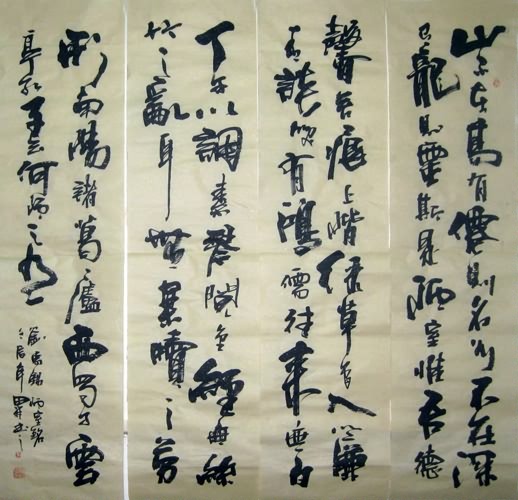 山不在高有僊則名水不在深
有龍則靈斯是陋室惟吾德
馨苔痕上階緑草色入簾
青談笑有鴻儒往來無白
丁可以調素琴閱金經無絲
竹之亂耳無案牘之勞
形南陽諸葛廬西蜀子雲
亭孔子云何陋之有
劉禹錫陋室銘
年